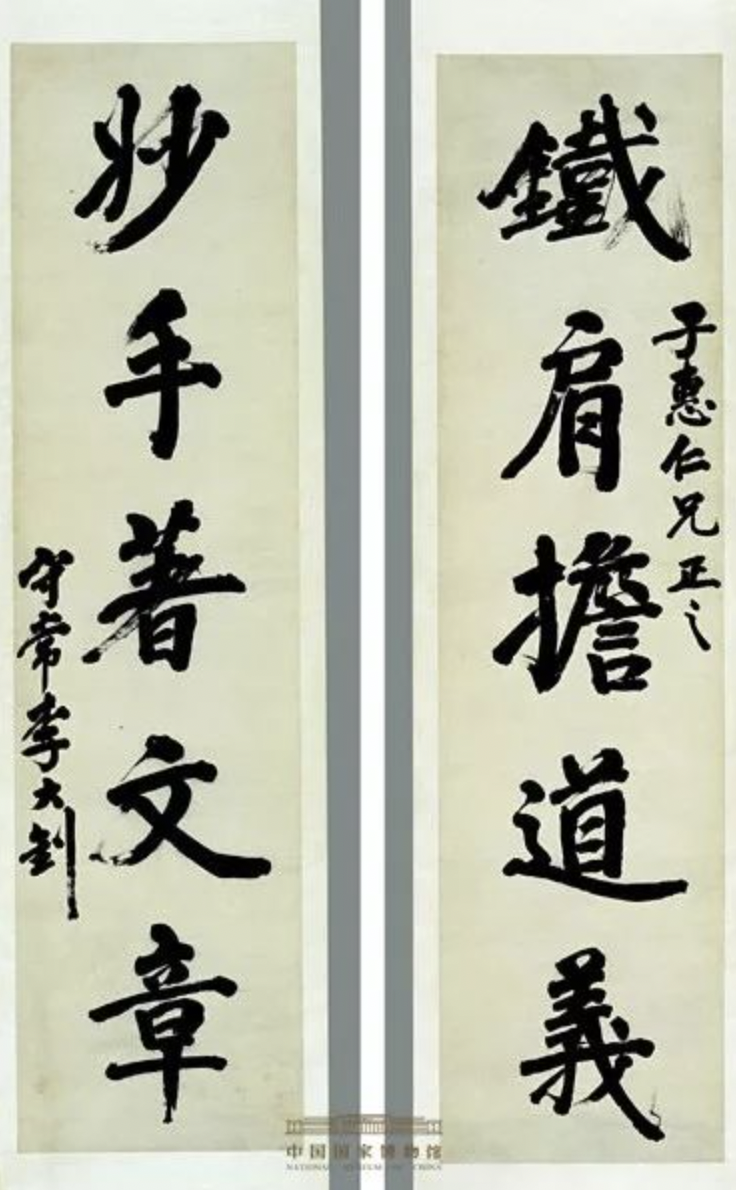 鐵肩擔道義
子惠仁兄正之
妙手著文章
守常李大釗
中国国家博物馆
NATIONAL MUSEUM OF CHINA